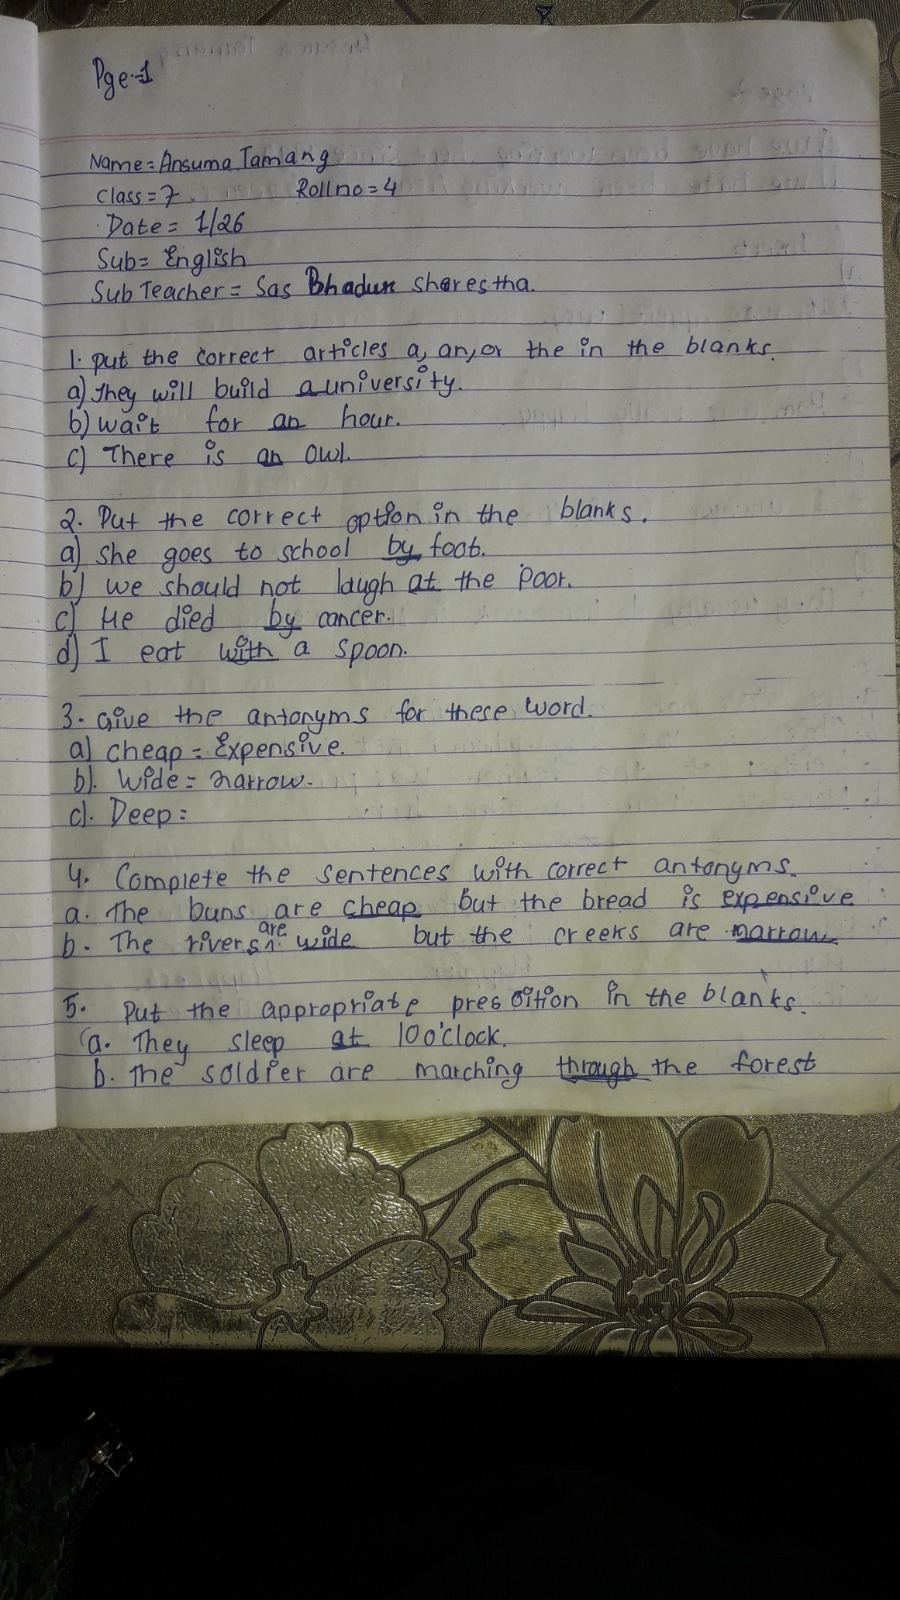 Pge-1
Name = Ansuma Tamang
Class = 7 Rollno = 4
Date = 1/26
Sub = English
Sub Teacher = Sas Bhadur sharestha.
1. put the correct articles a, an, or the in the blanks.
a) They will build a university.
b) wait for an hour.
c) There is an owl.
2. Put the correct option in the blanks.
a) she goes to school by foot.
b) we should not laugh at the poor.
c) He died by cancer.
d) I eat with a spoon.
3. Give the antonyms for these word.
a) cheap = Expensive.
b). Wide = narrow.
c). Deep =
4. Complete the sentences with correct antonyms.
a. The buns are cheap but the bread is expensive
b. The rivers are wide but the creeks are narrow
5. Put the appropriate presoition in the blanks.
a. They sleep at 10 o'clock.
b. The soldier are marching through the forest